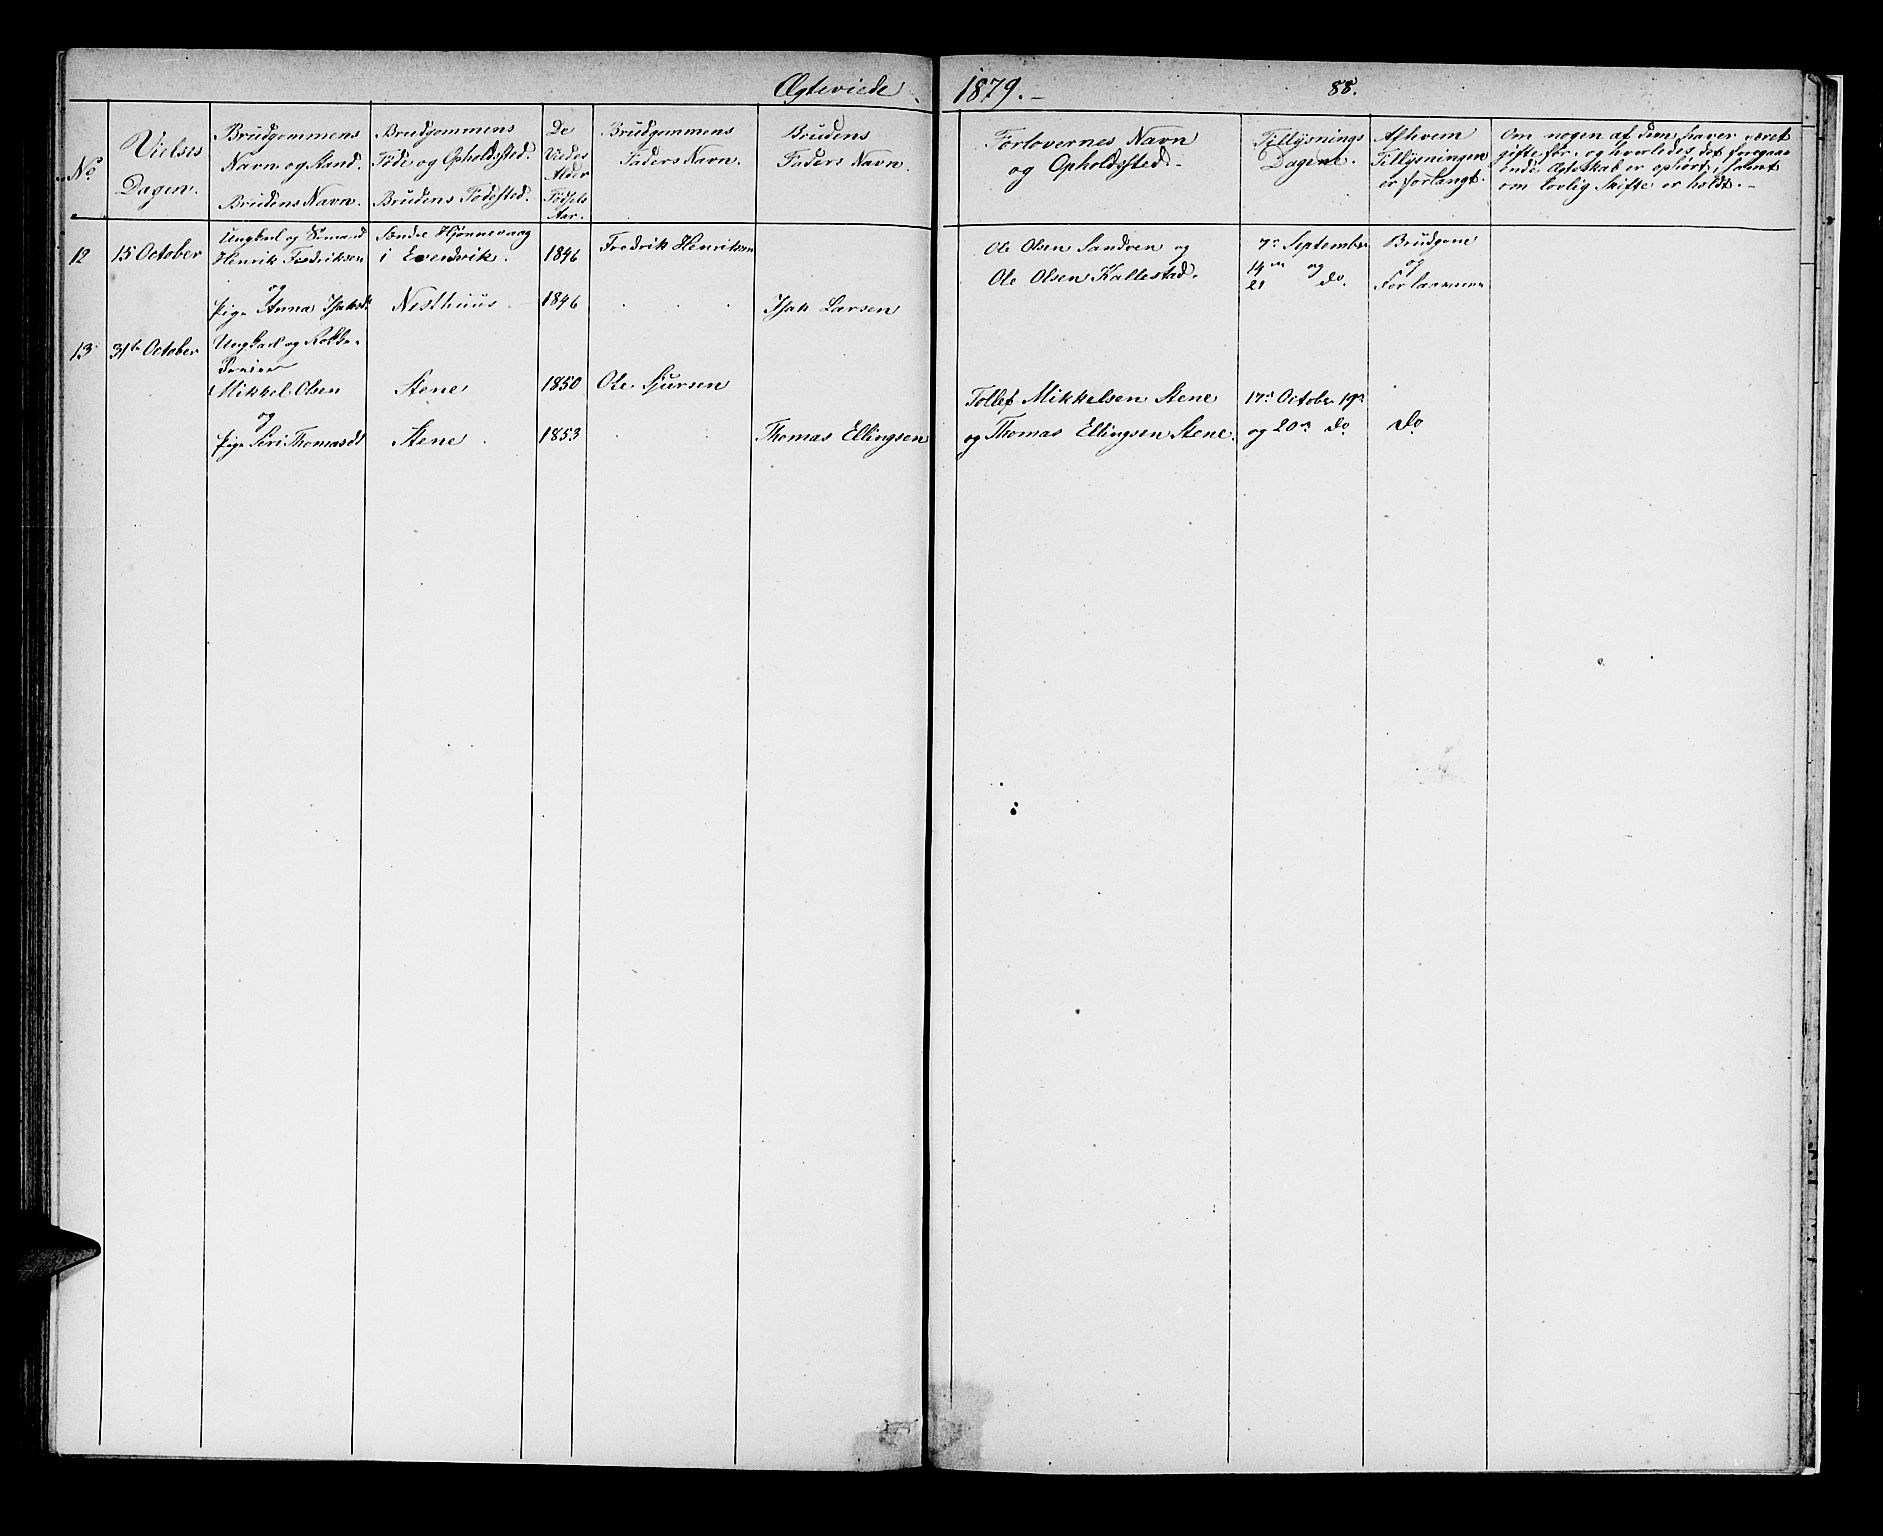 Ægteviede 1879. 88.
No
Vielses
Dagen.
Brudgommens
Navn og Stand.
Brudens Navn.
Brudgommens
Føde og Opholdsted.
Brudens Fødested.
De
Viedes
Alder
Fødsels
Aar.
Brudgommens
Faders Navn.
Brudens
Faders Navn.
Forlovernes Navn
og Opholdssted.
Tillysnings
Dagene.
Af hvem
Tillysningen
er forlangt.
Om nogen af dem haver været
gifte før, og hvorledes det foregaa-
ende Ægteskab er ophørt, samt
om lovlig Skifte er holdt.
12
15 October
Ungkarl og Sømand
Henrik Fredriksen
og
Pige Anna Isaksdt
Søndre Hjønnevaag
i Evendvik.
Nesthuus
1846
1846
Fredrik Henriksen
Isak Larsen
Ole Olsen Sandven og
Ole Olsen Kallestad.
7de September
14de og
21 do.
Brudgom
og
Forlaaverne
13
31te October
Ungkarl og
Mikkel Olsen
og
Pige Siri Thomasdt
Stene
Stene
1850
1853
Ole Sjursen
Thomas Ellingsen
Tollef Mikkelsen Stene
og Thomas Ellingsen Stene.
17de October 19de
og 20de do
do